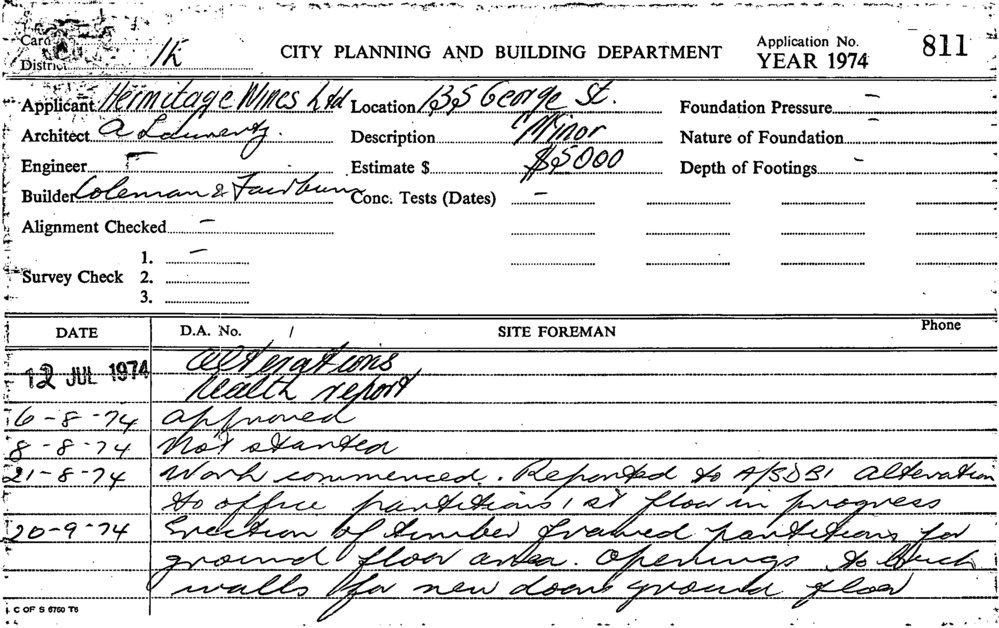 Card
District 1k
CITY PLANNING AND BUILDING DEPARTMENT
Application No. 811
YEAR 1974
Applicant Hermitage Wines Ltd Location 135 George St. Foundation Pressure –
Architect A Laurentz. Description Minor Nature of Foundation –
Engineer – Estimate $ $5000 Depth of Footings –
Builder Coleman & Fairburn Conc. Tests (Dates) –
Alignment Checked –
1. –
Survey Check 2.
3.
DATE D.A. No. / SITE FOREMAN Phone
12 JUL 1974 alterations
health report
6-8-74 approved
8-8-74 Not started
21-8-74 Work commenced. Reported to A/SDBI alteration
to office partitions 1st floor in progress
20-9-74 Erection of timber framed partitions for
ground floor area. Openings to brick
walls for new doors ground floor
C OF S 6760 T6